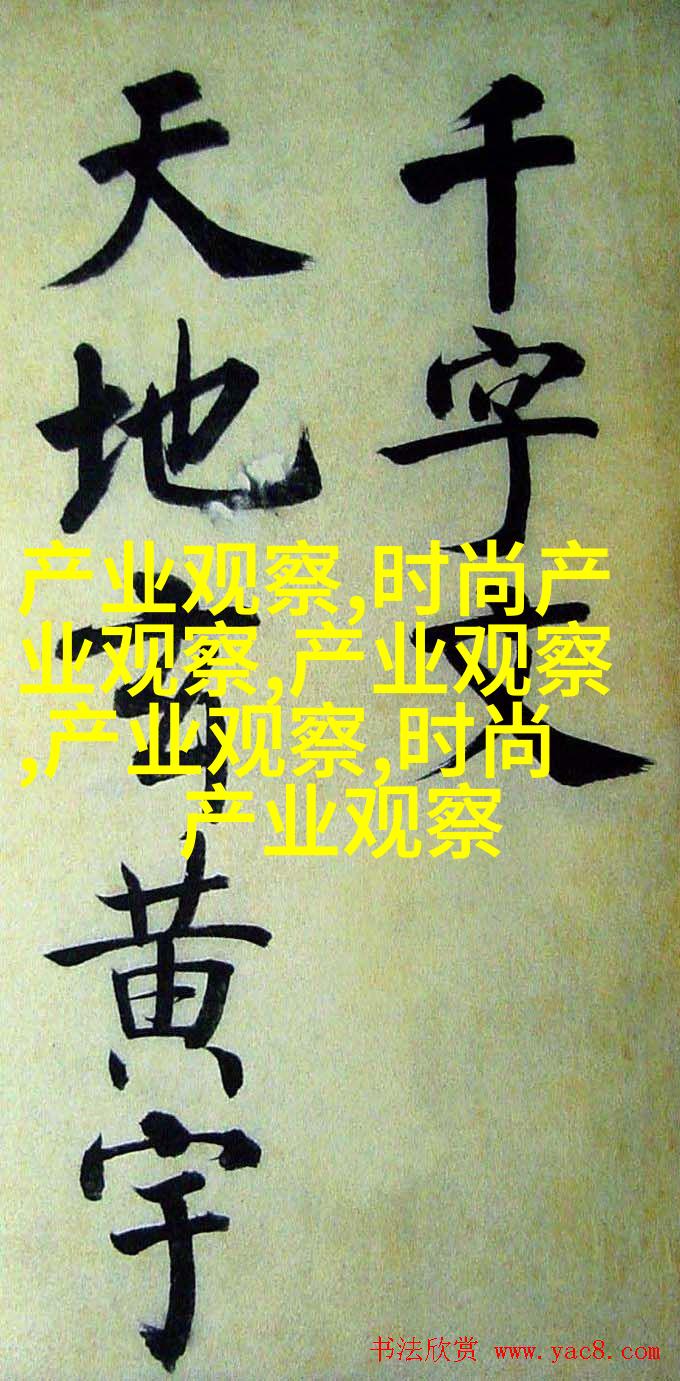 千字文
天地玄黄宇
产业观察,时尚产
业观察,产业观察
,产业观察,时尚
产业观察
书法欣赏 www.yac8.com